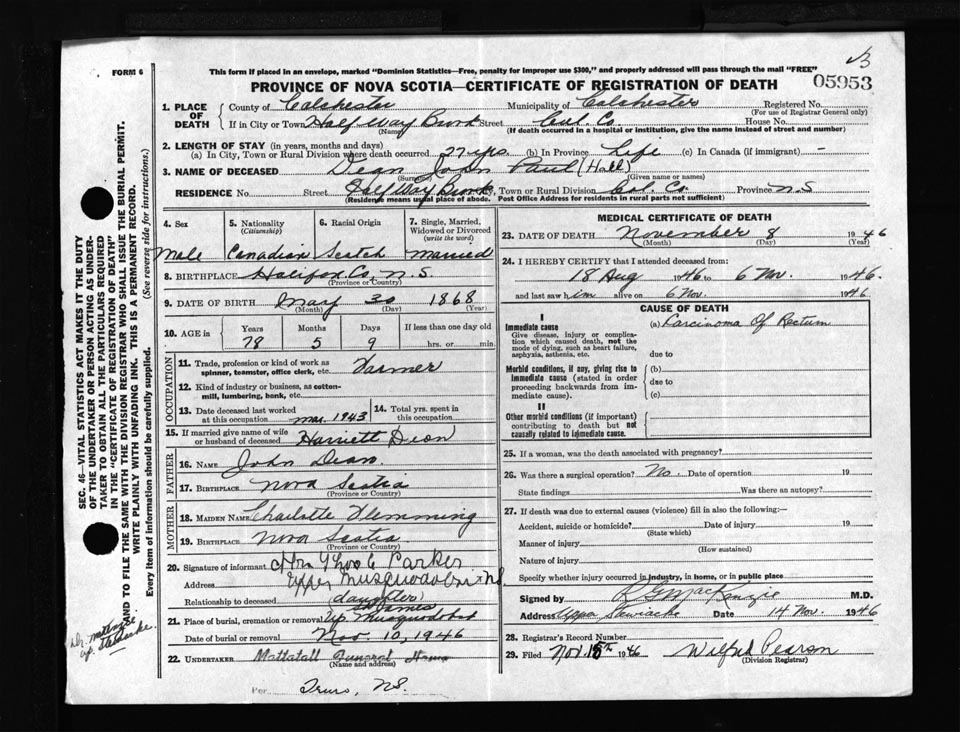 FORM 6
This form if placed in an envelope, marked "Dominion Statistics—Free, penalty for improper use $300," and properly addressed will pass through the mail "FREE"
PROVINCE OF NOVA SCOTIA—CERTIFICATE OF REGISTRATION OF DEATH
05953
1. PLACE OF DEATH County of Colchester Municipality of Colchester Registered No.
(For use of Registrar General only)
If in City or Town Half Way Brook Street Col. Co. House No.
(Name) (If death occurred in a hospital or institution, give the name instead of street and number)
2. LENGTH OF STAY (in years, months and days)
(a) In City, Town or Rural Division where death occurred 27 yrs (b) In Province Life (c) In Canada (if immigrant) -
3. NAME OF DECEASED Dean John Paul (Hall)
(Surname) (Given name or names)
RESIDENCE No. Street Half Way Brook, Town or Rural Division Col. Co. Province N.S
(Residence means usual place of abode. Post Office Address for residents in rural parts not sufficient)
4. Sex Male
5. Nationality (Citizenship) Canadian
6. Racial Origin Scotch
7. Single, Married, Widowed or Divorced (write the word) Married
8. BIRTHPLACE Halifax Co, N.S.
(Province or Country)
9. DATE OF BIRTH May 30 1868
(Month) (Day) (Year)
10. AGE in Years Months Days If less than one day old
78 5 9 hrs. or min.
OCCUPATION
11. Trade, profession or kind of work as spinner, teamster, office clerk, etc. Farmer
12. Kind of industry or business, as cotton-mill, lumbering, bank, etc.
13. Date deceased last worked at this occupation Mar. 1943
14. Total yrs. spent in this occupation
15. If married give name of wife or husband of deceased Harriett Dean
FATHER
16. NAME John Dean.
17. BIRTHPLACE Nova Scotia
(Province or Country)
MOTHER
18. MAIDEN NAME Charlotte Flemming
19. BIRTHPLACE Nova Scotia
(Province or Country)
20. Signature of informant Mrs Thos C Parker
Address Upper Musquodoboit N.S.
Relationship to deceased (daughter)
St James
21. Place of burial, cremation or removal Up. Musquodoboit
Date of burial or removal Nov. 10, 1946
22. UNDERTAKER Mattatall Funeral Home
(Name and address)
Per Truro, N.S.
MEDICAL CERTIFICATE OF DEATH
23. DATE OF DEATH November 8 1946
(Month) (Day) (Year)
24. I HEREBY CERTIFY that I attended deceased from:
18 Aug 1946 to 6 Nov. 1946.
and last saw him alive on 6 Nov. 1946
CAUSE OF DEATH
I
Immediate cause
Give disease, injury or complication which caused death, not the mode of dying, such as heart failure, asphyxia, asthenia, etc.
(a) Carcinoma Of Rectum
due to
Morbid conditions, if any, giving rise to immediate cause (stated in order proceeding backwards from immediate cause).
(b)
due to
(c)
II
Other morbid conditions (if important) contributing to death but not causally related to immediate cause.
25. If a woman, was the death associated with pregnancy?
26. Was there a surgical operation? No. Date of operation 19
State findings Was there an autopsy?
27. If death was due to external causes (violence) fill in also the following:—
Accident, suicide or homicide? Date of injury 19
(State which)
Manner of injury
(How sustained)
Nature of injury
Specify whether injury occurred in industry, in home, or in public place
Signed by R G MacKenzie M.D.
Address Upper Stewiacke Date 14 Nov. 1946
28. Registrar's Record Number
29. Filed Nov. 15th 1946 Wilfred Pearson
(Division Registrar)
SEC. 46—VITAL STATISTICS ACT MAKES IT THE DUTY
OF THE UNDERTAKER OR PERSON ACTING AS UNDERTAKER
TO OBTAIN ALL THE PARTICULARS REQUIRED
IN THE "CERTIFICATE OF REGISTRATION OF DEATH"
AND TO FILE THE SAME WITH THE DIVISION REGISTRAR WHO SHALL ISSUE THE BURIAL PERMIT.
WRITE PLAINLY WITH UNFADING INK. THIS IS A PERMANENT RECORD.
Every item of information should be carefully supplied. (See reverse side for instructions.)
Up. Stewiacke.